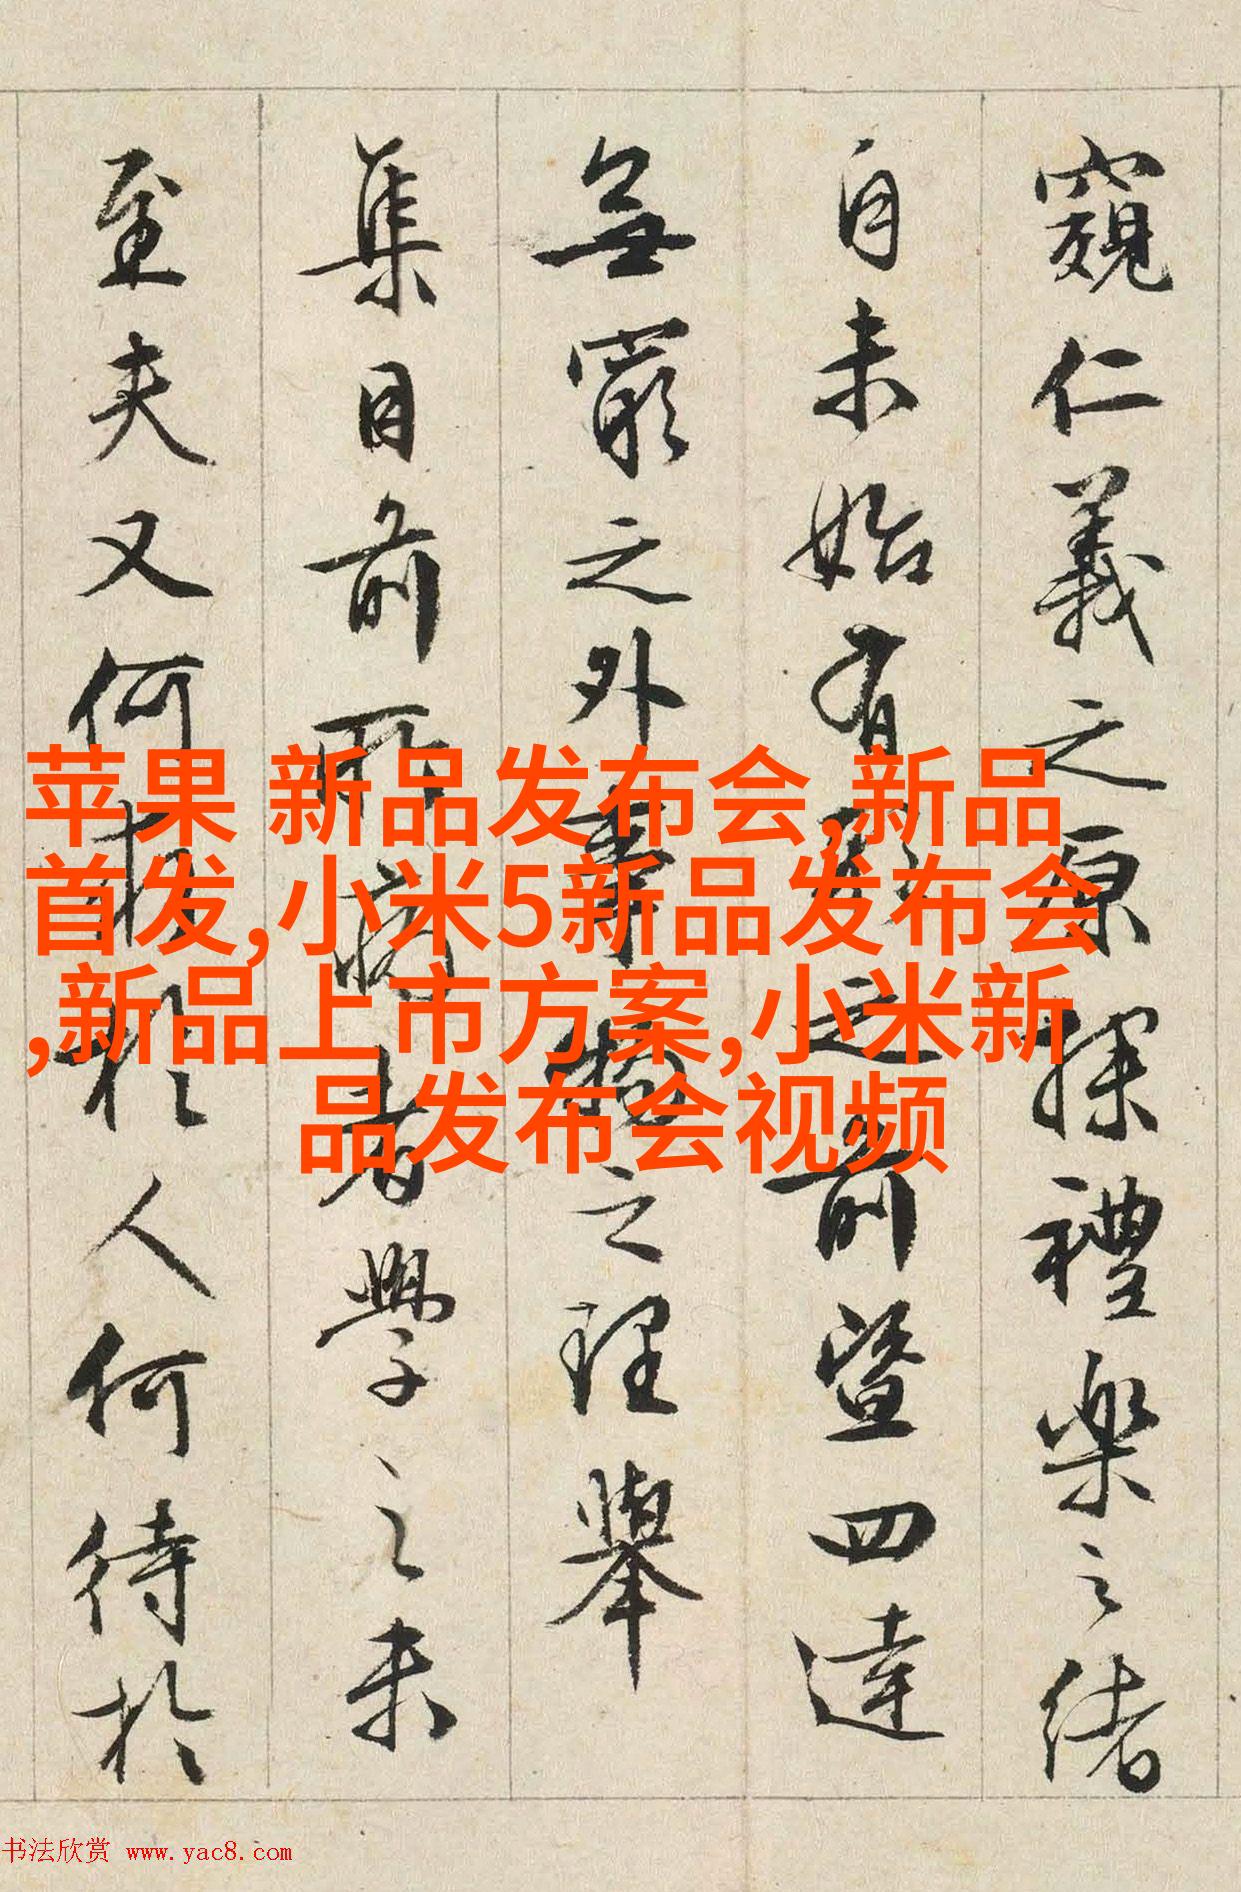 窺仁義之原探禮樂之緒
自未始有形之前暨四達
無窮之外事物之理舉
集目前所病者學之未
至夫又何求於人何待於
苹果 新品发布会,新品
首发,小米5新品发布会
,新品上市方案,小米新
品发布会视频
书法欣赏 www.yac8.com